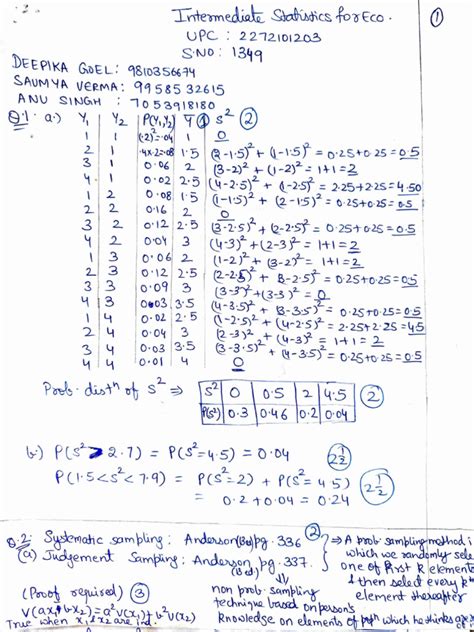 Intermediate Statistics for Eco. ①
UPC : 2272101203
S.NO : 1349
DEEPIKA GOEL : 9810356674
SAUMYA VERMA : 9958532615
ANU SINGH : 7053918180
Q.1 a.) Y₁ Y₂ P(Y₁,Y₂) Ȳ ① S² ②
1 1 (.2)²=.04 1 0
2 1 .4x.2=.08 1.5 (2-1.5)² + (1-1.5)² = 0.25+0.25 = 0.5
3 1 0.06 2 (3-2)² + (1-2)² = 1+1 = 2
4 1 0.02 2.5 (4-2.5)² + (1-2.5)² = 2.25+2.25 = 4.50
1 2 0.08 1.5 (1-1.5)² + (2-1.5)² = 0.25+0.25 = 0.5
2 2 0.16 2 0
3 2 0.12 2.5 (3-2.5)² + (2-2.5)² = 0.25+0.25 = 0.5
4 2 0.04 3 (4-3)² + (2-3)² = 1+1 = 2
1 3 0.06 2 (1-2)² + (3-2)² = 1+1 = 2
2 3 0.12 2.5 (2-2.5)² + (3-2.5)² = 0.25+0.25 = 0.5
3 3 0.09 3 (3-3)² + (3-3)² = 0
4 3 0.03 3.5 (4-3.5)² + (3-3.5)² = 0.25+0.25 = 0.5
1 4 0.02 2.5 (1-2.5)² + (4-2.5)² = 2.25+2.25 = 4.5
2 4 0.04 3 (2-3)² + (4-3)² = 1+1 = 2
3 4 0.03 3.5 (3-3.5)² + (4-3.5)² = 0.25+0.25 = 0.5
4 4 0.01 4 0
Prob. distⁿ of S² ⇒ S² 0 0.5 2 4.5 ②
P(S²) 0.3 0.46 0.2 0.04
b.) P(S² > 2.7) = P(S²=4.5) = 0.04 2½
P(1.5<S²<7.9) = P(S²=2) + P(S²=4.5) 2½
= 0.2+0.04 = 0.24
Q.2 Systematic sampling: Anderson pg. 336 ② ⇒ A prob. sampling method i
(a) Judgement Sampling: Anderson pg. 337. which we randomly sele
one of first k elements
& then select every k
element thereafter
non prob. sampling
technique based on person's
knowledge on elements of popⁿ which he thinks are
(Proof required) ③
True when x₁ & x₂ are iid.